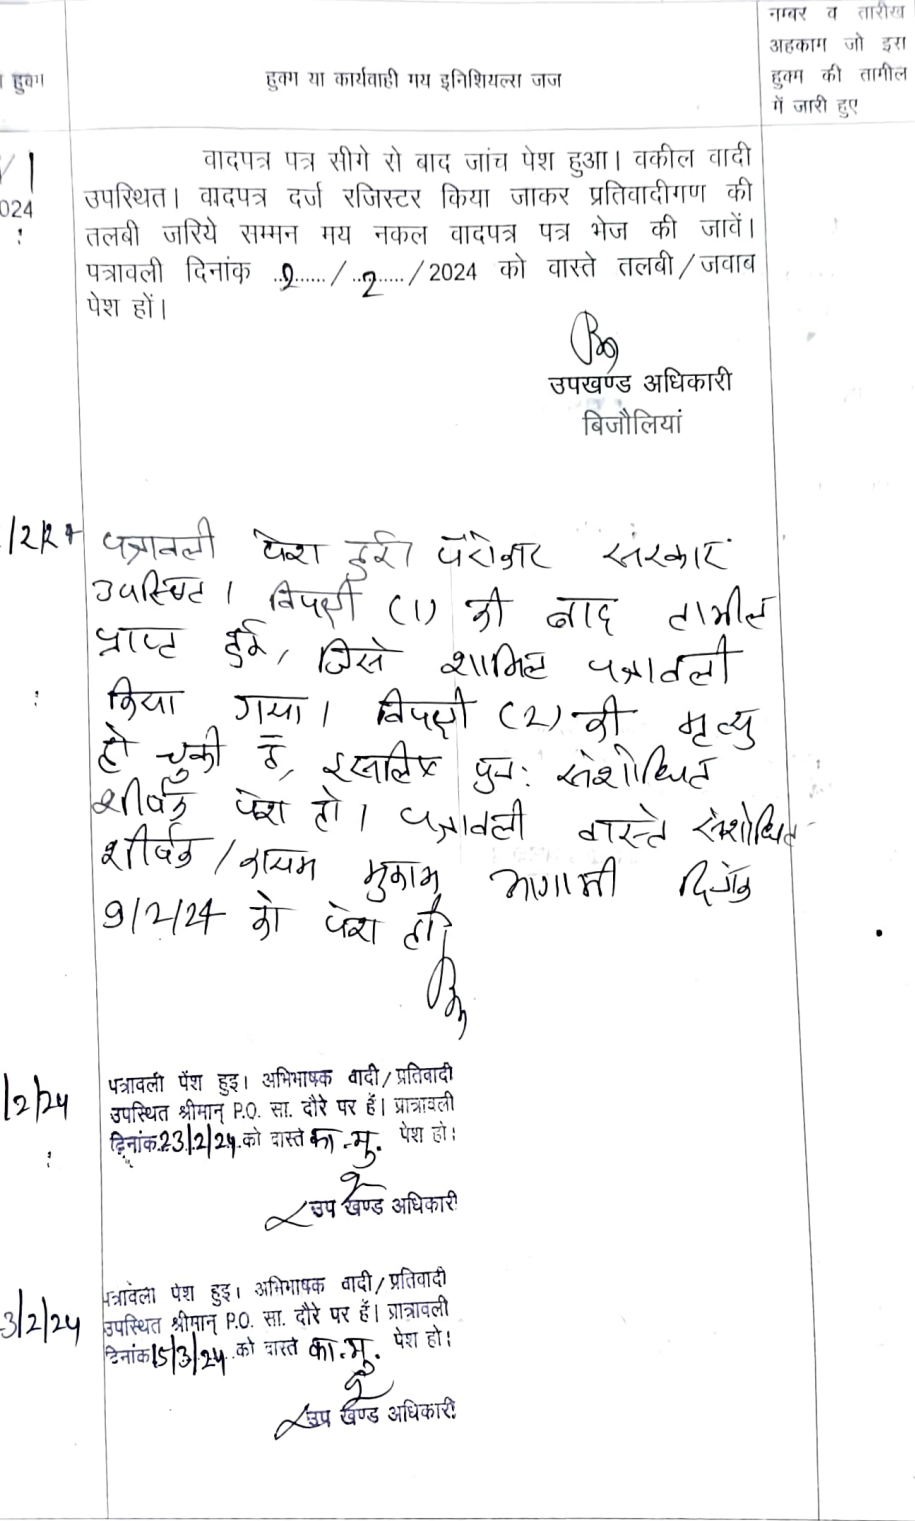 नम्बर व तारीख
अहकाम जो इस
हुक्म की तामील
में जारी हुए
हुक्म
हुक्म या कार्यवाही मय इनिशियल्स जज
024
वादपत्र पत्र सीगे से बाद जांच पेश हुआ। वकील वादी
उपस्थित। वादपत्र दर्ज रजिस्टर किया जाकर प्रतिवादीगण की
तलबी जरिये सम्मन मय नकल वादपत्र पत्र भेज की जावें।
पत्रावली दिनांक ..2....../..2...../2024 को वास्ते तलबी/जवाब
पेश हों।
उपखण्ड अधिकारी
बिजौलियां
/2/24 पत्रावली पेश हुई। पैरोकार सरकार
उपस्थित। विपक्षी (1) की बाद तामील
प्राप्त हुई, जिसे शामिल पत्रावली
किया गया। विपक्षी (2) की मृत्यु
हो चुकी है, इसलिए पुन: संशोधित
शीर्षक पेश हो। पत्रावली वास्ते संशोधित
शीर्षक/कायम मुकाम आगामी दिनांक
9/2/24 को पेश हो।
/2/24 पत्रावली पेंश हुइ। अभिभाषक वादी/प्रतिवादी
उपस्थित श्रीमान् P.O. सा. दौरे पर हैं। प्रात्रावली
दिनांक 23/2/24 को वास्ते का.मु. पेश हो।
उप खण्ड अधिकारी
3/2/24 पत्रावली पेश हुइ। अभिभाषक वादी/प्रतिवादी
उपस्थित श्रीमान् P.O. सा. दौरे पर हैं। प्रात्रावली
दिनांक 15/3/24 को वास्ते का.मु. पेश हो।
उप खण्ड अधिकारी